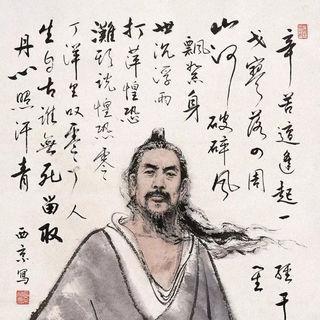 辛苦遭逢起一经干
戈寥落四周星
山河破碎风
飘絮身
世沉浮雨
打萍惶恐
滩头说惶恐零
丁洋里叹零丁人
生自古谁无死留取
丹心照汗青
西京写